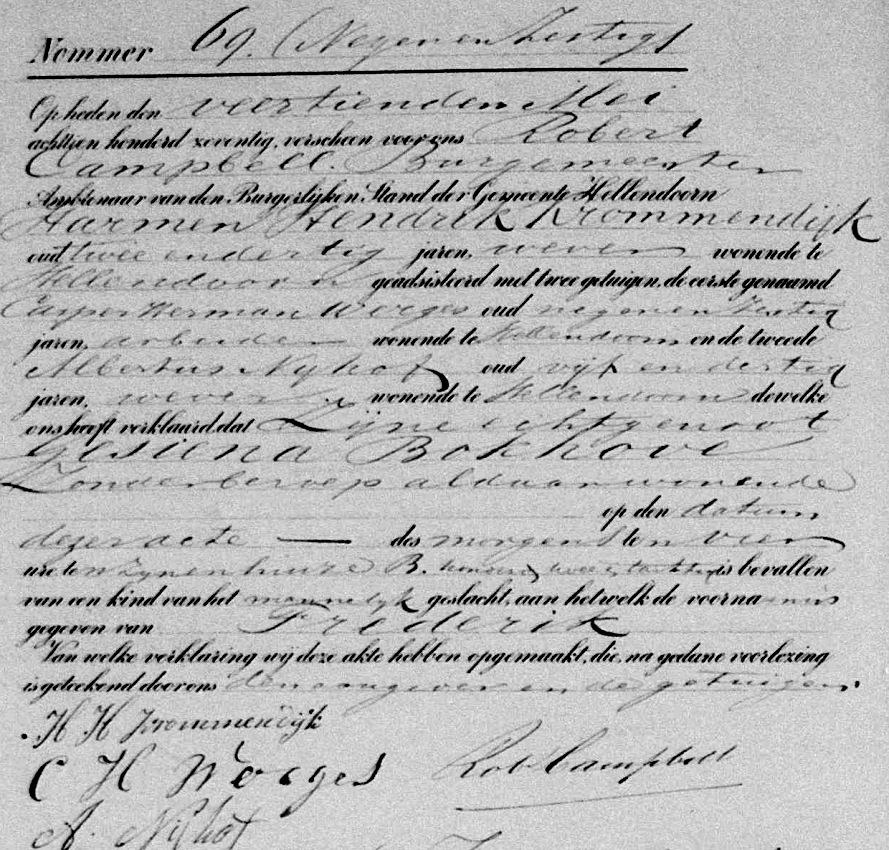 Nommer 69. (Negen en Zestig)
Op heden den veertienden Mei
achttien honderd zeventig, verscheen voor ons Robert
Campbell. Burgemeester
Ambtenaar van den Burgerlijken Stand der Gemeente Hellendoorn
Harmen Hendrik Krommendijk
oud twee en dertig jaren, wever wonende te
Hellendoorn geadsisteerd met twee getuigen, de eerste genaamd
Casper Herman Worges oud negen en Zestig
jaren, arbeider wonende te Hellendoorn en de tweede
Albertus Nyhof oud vijf en dertig
jaren, wever wonende te Hellendoorn dewelke
ons heeft verklaard, dat Zijne echtgenoot
Gesiena Bokhove
Zonder beroep aldaar wonende
op den datum
dezer acte — des morgens ten vier
ure te zynen huize B. twee is bevallen
van een kind van het mannelyk geslacht, aan hetwelk de voorna
gegeven van Frederik
Van welke verklaring wij deze akte hebben opgemaakt, die, na gedane voorlezing
is geteekend door ons den aangever en de getuigen.
H H Krommendijk
C H Worges Rob Campbell
A. Nijhof